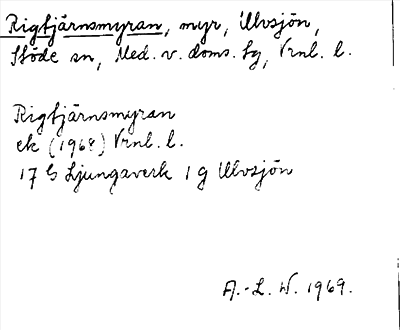 Rigtjärnsmyran, myr, Ulvsjön,
Stöde sn, Med. v. doms. tg, Vrnl. l.
Rigtjärnsmyran
ek (1968) Vrnl. l.
17 G Ljungaverk 1 g Ulvsjön
A.-L. W. 1969.